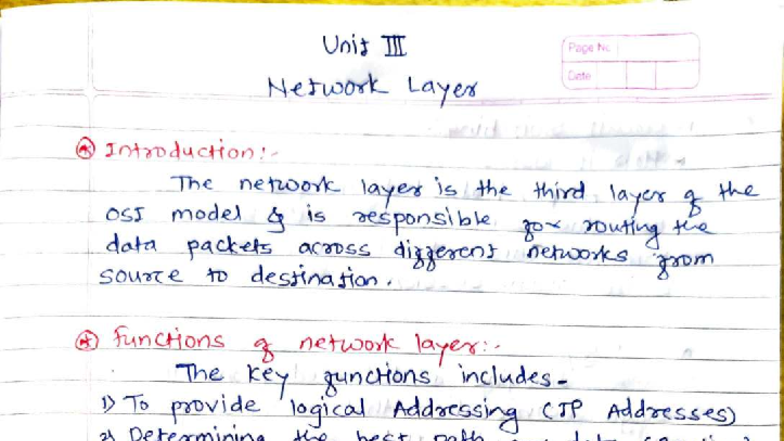 Unit III
Page No
Network Layer
Date
Introduction:-
The network layer is the third layer of the
OSI model & is responsible for routing the
data packets across different networks from
source to destination.
Functions of network layer:-
The key functions includes-
1) To provide logical Addressing (IP Addresses)
2) Determining the best path